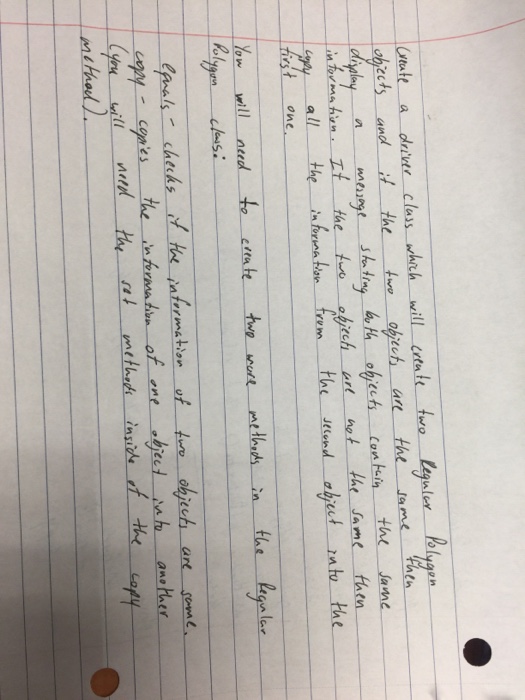 Create a driver class which will create two Regular Polygon
objects and if the two objects are the same then
display a message stating both objects contain the same
information. If the two objects are not the same then
copy all the information from the second object into the
first one.
You will need to create two more methods in the Regular
Polygon class:
equals - checks if the information of two objects are same.
copy - copies the information of one object into another
(you will need the set methods inside of the copy
method).